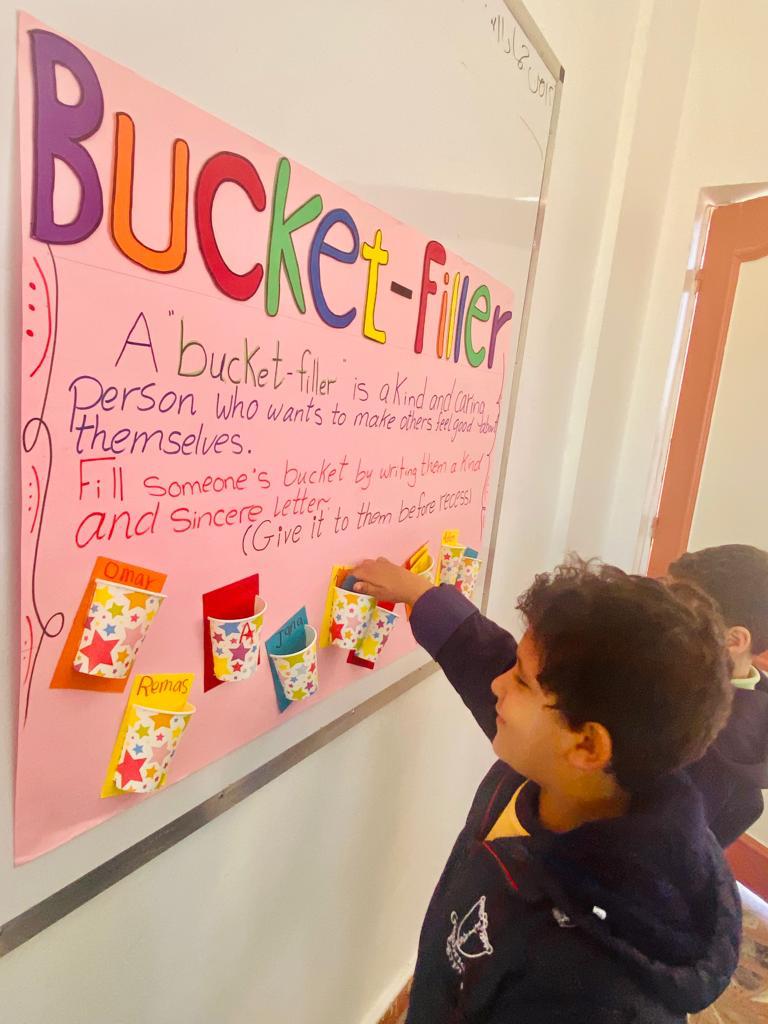 Bucket-filler
A "bucket-filler" is a kind and caring
person who wants to make others feel good about
themselves.
Fill someone's bucket by writing them a kind
and sincere letter.
(Give it to them before recess)
Omar
A
Jana
Remas